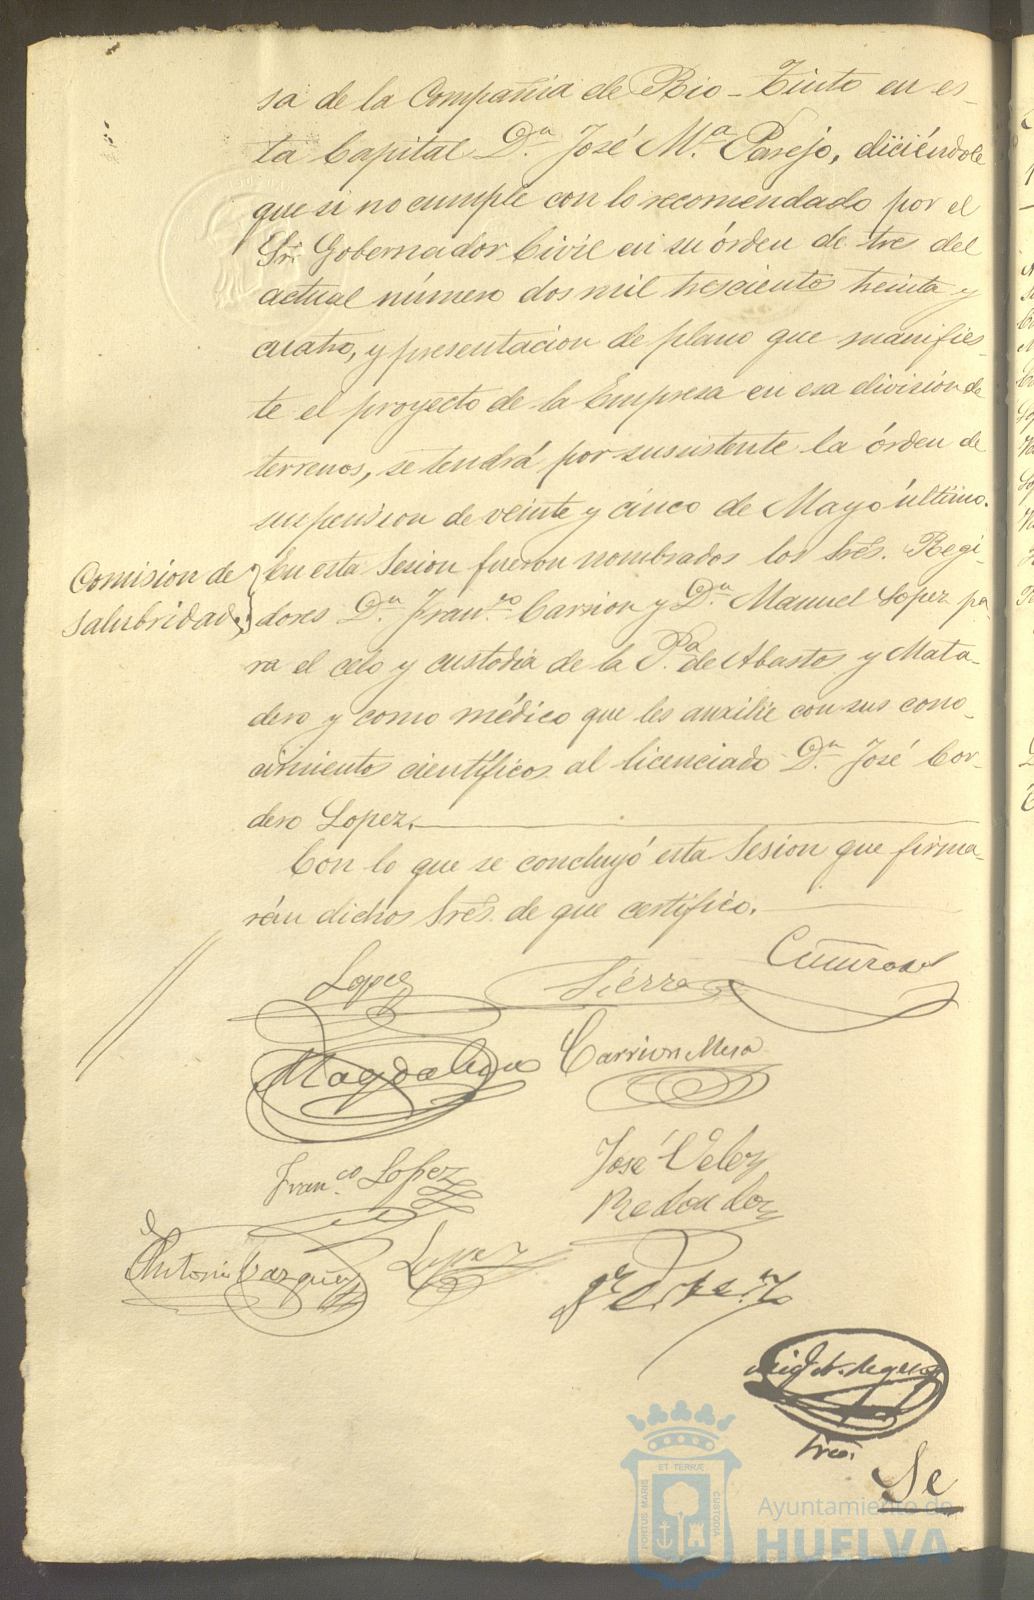 sa de la Compañia de Rio-Tinto en es-
ta Capital D.n José M.a Parejo, diciéndole
que si no cumple con lo recomendado por el
Sr. Gobernador Civil en su órden de tres del
actual número dos mil trescientos treinta y
cuatro, y presentacion de plano que manifies-
te el proyecto de la Empresa en esa división de
terrenos, se tendrá por susistente la órden de
suspension de veinte y cinco de Mayo último.
Comision de
salubridad.
En esta Sesion fueron nombrados los Sres. Regi-
dores D.n Fran.co Carrion y D.n Manuel Lopez pa
ra el celo y custodia de la P.a de Abastos y Mata-
dero y como médico que les auxilie con sus cono-
cimientos científicos al licenciado D.n José Cor-
dero Lopez.
Con lo que se concluyó esta Sesion que firma-
rán dichos Sres. de que certifico.
Lopez Sierra
Magdaleno Carrion Mesa
Fran.co Lopez José Velez
Redondo
Antonio Vazquez Lopez
Srio.
Se
PORTUS MARIS ET TERRÆ CUSTODIA
Ayuntamiento de
HUELVA